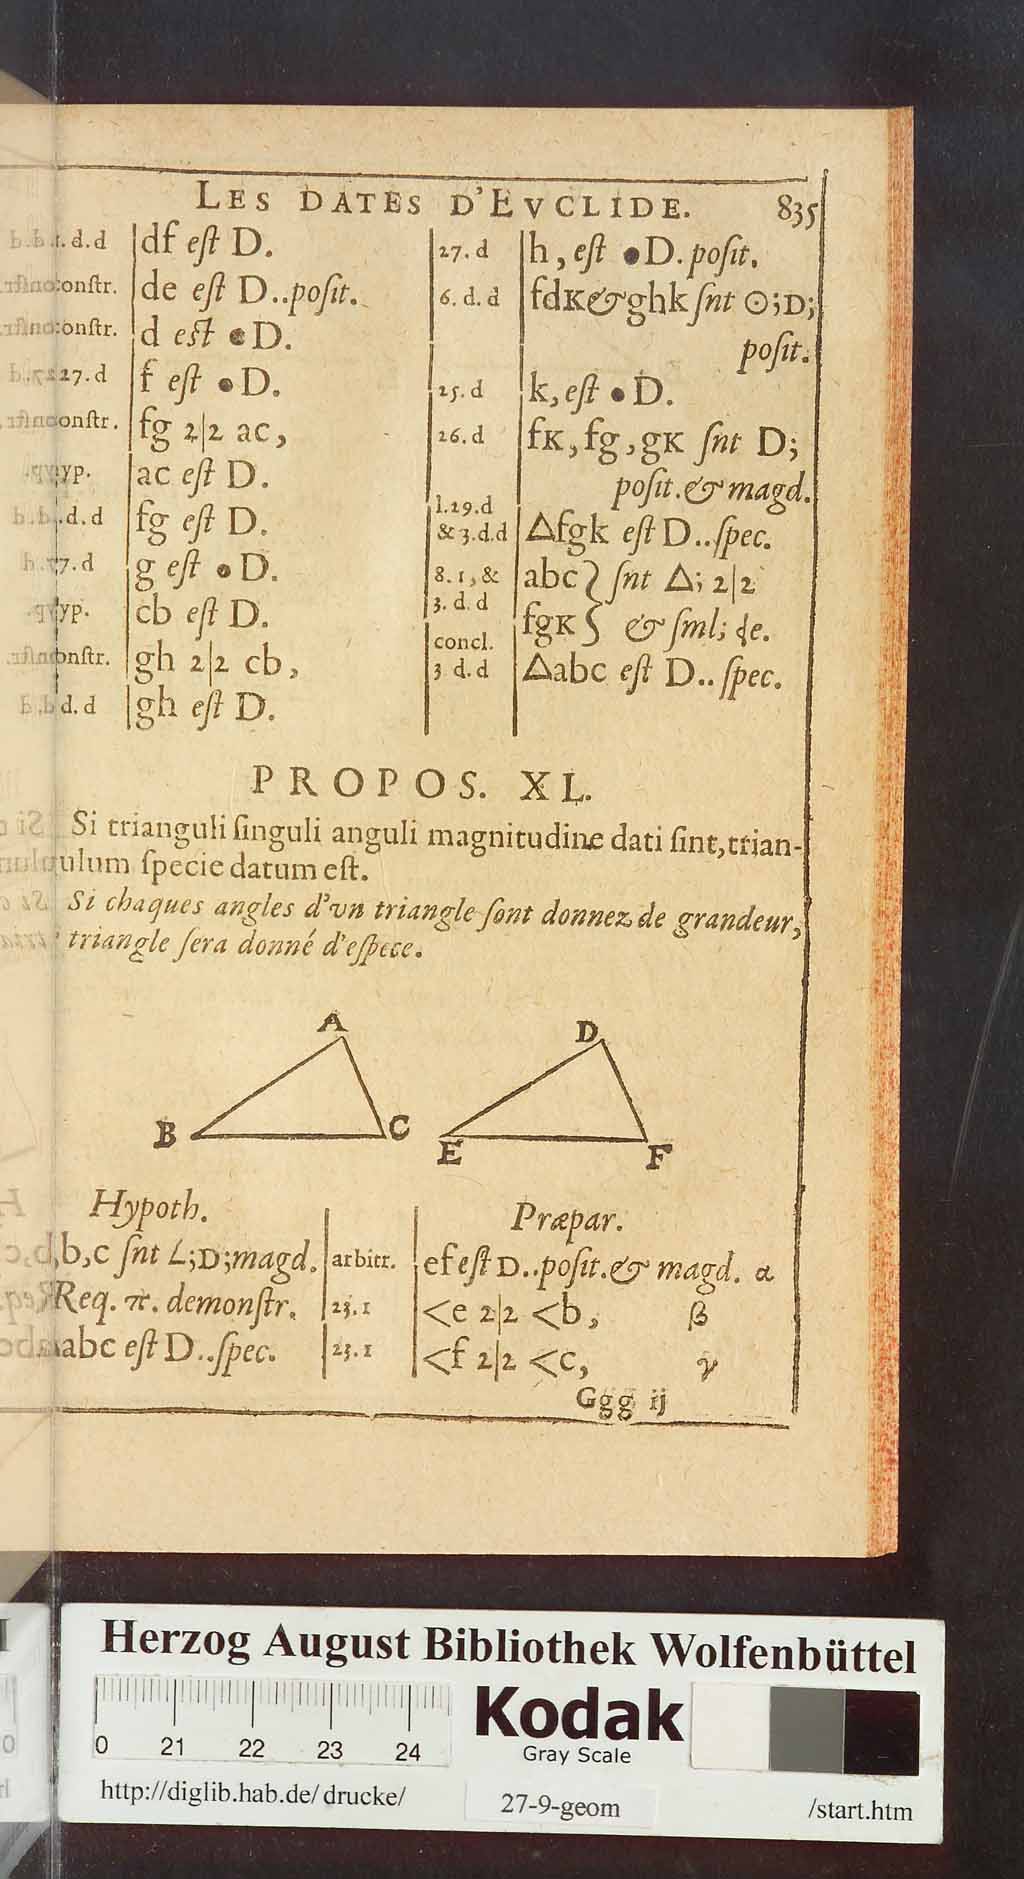 LES DATES D'EVCLIDE. 835
d. d df est D.
onstr. de est D..posit.
onstr. d est •D.
27. d f est •D.
onstr. fg 2|2 ac,
yp. ac est D.
d. d fg est D.
7. d g est •D.
yp. cb est D.
onstr. gh 2|2 cb,
d. d gh est D.
27. d h, est •D. posit.
6. d. d fdK & ghk snt ⊙;D;
posit.
25. d k, est •D.
26. d fK, fg, gK snt D;
posit. & magd.
1.29.d
& 3.d.d △fgk est D..spec.
8. 1, & abc } snt △; 2|2
3. d. d fgK } & sml; ɖe.
concl.
3. d. d △abc est D.. spec.
PROPOS. XL.
Si trianguli singuli anguli magnitudine dati sint, trian-
ulum specie datum est.
Si chaques angles d'vn triangle sont donnez de grandeur,
triangle sera donné d'espece.
A D
B C E F
Hypoth.
b,c snt ∠;D;magd.
Req. π. demonstr.
abc est D..spec.
Præpar.
arbitr. ef est D..posit. & magd. α
23.1 <e 2|2 <b, β
23.1 <f 2|2 <c, γ
Ggg ij
Herzog August Bibliothek Wolfenbüttel
0 21 22 23 24
Kodak
Gray Scale
http://diglib.hab.de/drucke/ 27-9-geom /start.htm